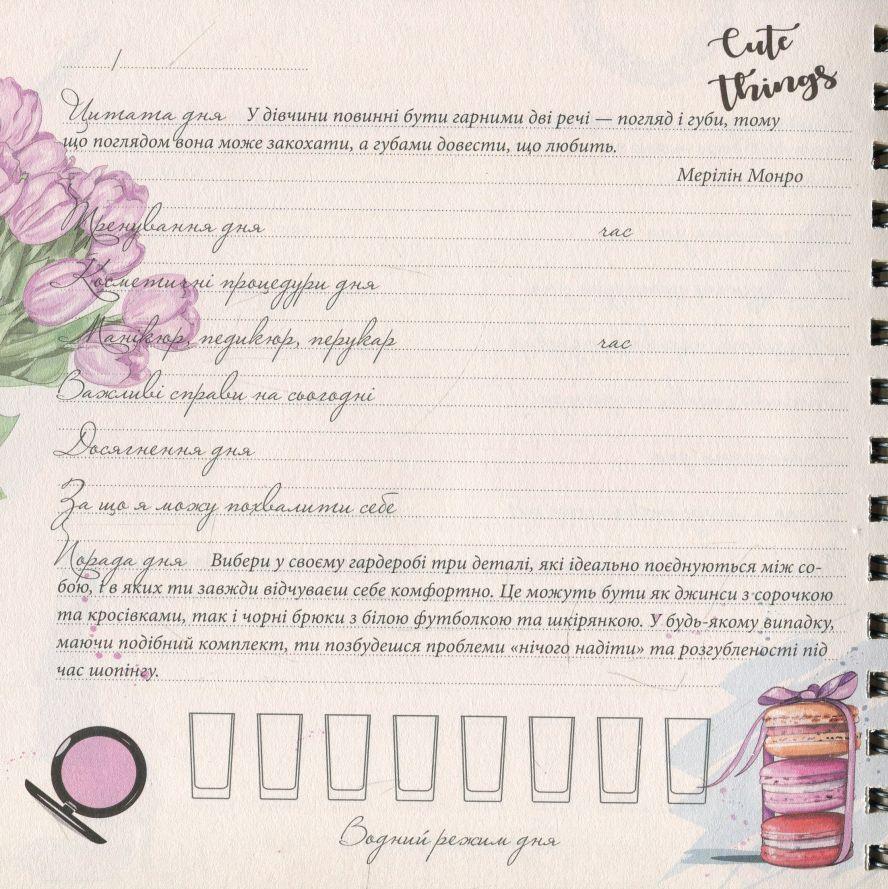 Cute
things
/
Цитата дня У дівчини повинні бути гарними дві речі — погляд і губи, тому
що поглядом вона може закохати, а губами довести, що любить.
Мерілін Монро
Тренування дня час
Косметичні процедури дня
Манікюр, педикюр, перукар час
Важливі справи на сьогодні
Досягнення дня
За що я можу похвалити себе
Порада дня Вибери у своєму гардеробі три деталі, які ідеально поєднуються між со-
бою, і в яких ти завжди відчуваєш себе комфортно. Це можуть бути як джинси з сорочкою
та кросівками, так і чорні брюки з білою футболкою та шкірянкою. У будь-якому випадку,
маючи подібний комплект, ти позбудешся проблеми «нічого надіти» та розгубленості під
час шопінгу.
Водний режим дня